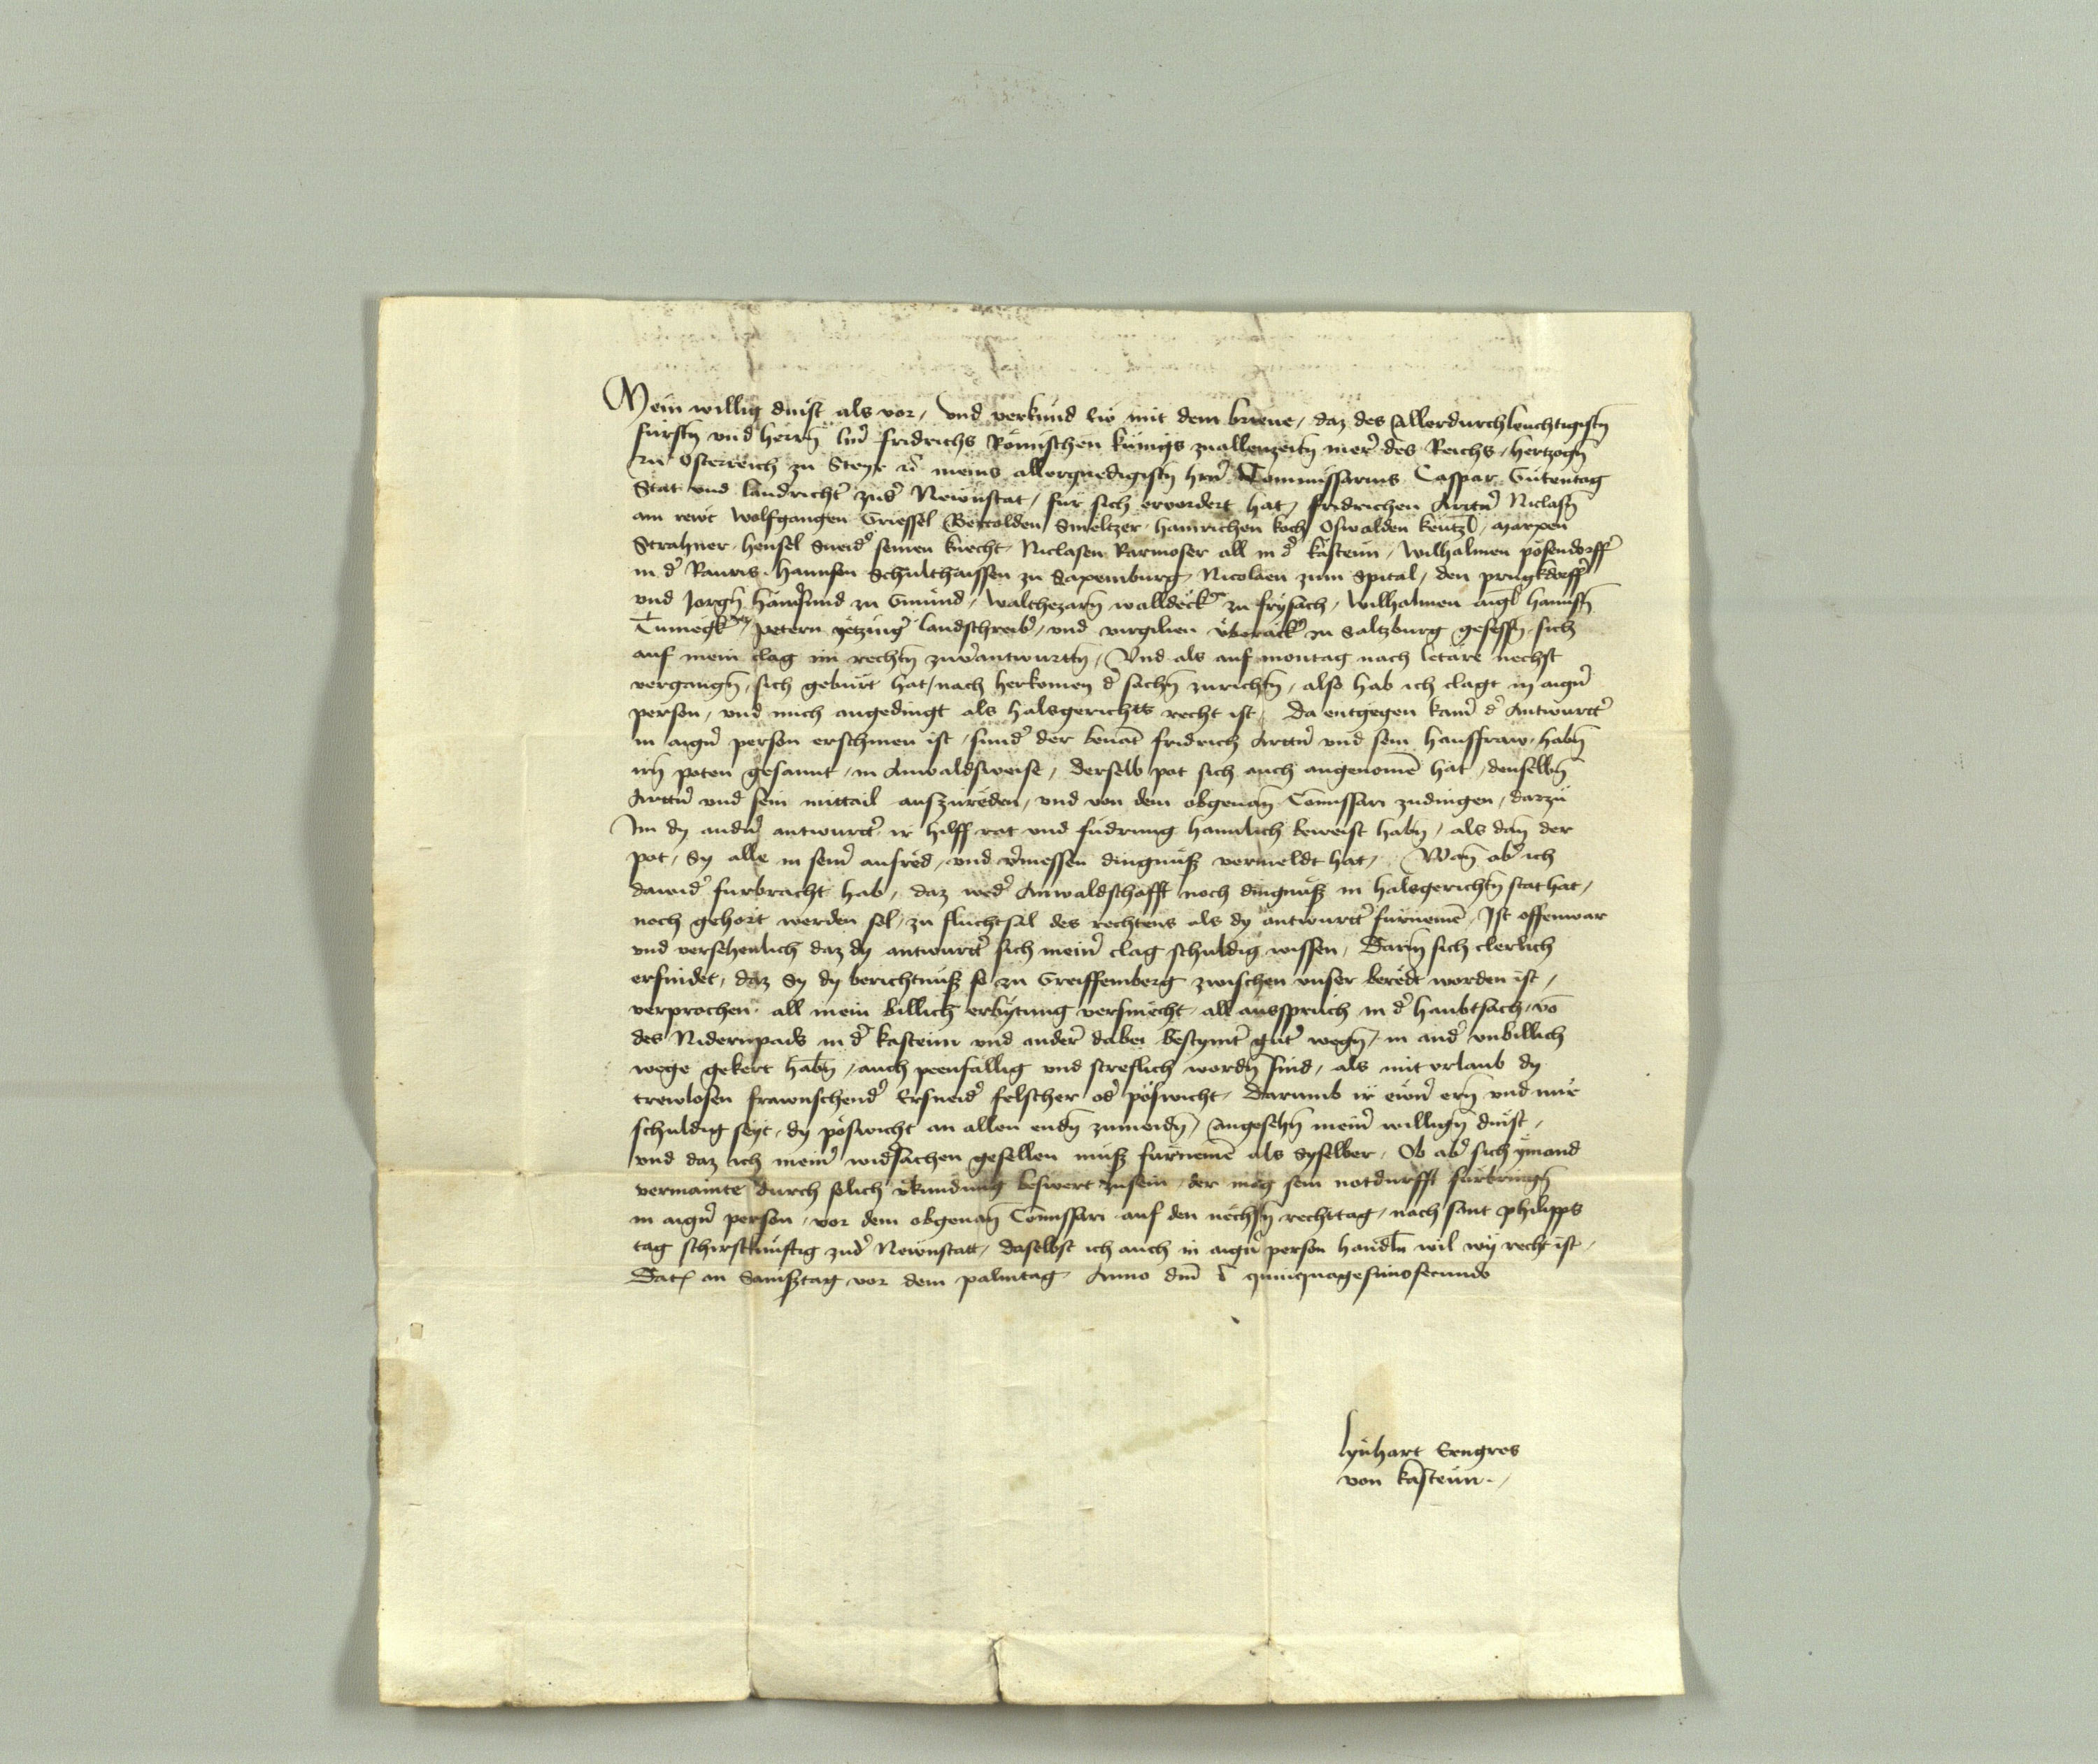 Mein willig dinst als vor, vnd verkund ew mit dem brieue, daz des Allerdurchleuchtigistn
fürstn vnd herrn hrn fridrichs Römischen künigs zuallenzeitn merer des Reichs, hertzogn
zu Osterreich zu Steyr &c meins allergnedigistn hrn Commissarius Caspar Gutentag
Stat vnd landrichter zuder Newnstat, für sich ervordert hat, fridrichen Arttn Niclasn
am rewt wolfgangen Griessel Bertolden Smeltzer, hainrichen koch Oswalden keutzl, marxen
Strahner, hensel Sneider seinen knecht, Niclasen Ramoser all in der kasteun, wilhalmen pösendorffer
in der Rauris, hannsen Schulthaissen zu Saxemburg, Nicolaen zum Spital, den prugkdorffer
vnd Jorgn zu Gmünd, walthezarn walldecker zu frysach, wilhalmen aigl hannsn
petern yetzinger landschreiber, vnd virgilien überacker zu Saltzburg gesessn, sich
auf mein clag im rechtn zuverantwurttn, Vnd als auf montag nach letare nechst
vergangn, sich gebürt hat, nach herkomen der sachn zurichtn, also hab ich clagt in aigner
person, vnd mich angedingt als halsgerichts recht ist, Da entgegen kainer der Antwurtter
in aigner person erschinen ist, sunder der benant fridrich Arttner vnd sein hausfraw, habn
irn poten gesannt, in Anwaldsweise, derselb pot sich auch angenomen hat, denselbn
Arttner vnd sein mittail auszureden, vnd von dem obgenann Comissari zudingen, darzu
Im dy andern antwurtter ir hilff rat vnd fudrung haimlich beweist habn, als dann der
pot, Sy alle in seiner anfred, vnd vermessen dingnuß vermeldt hat, Wann aber ich
dawider furbracht hab, daz weder Anwaldschafft noch dingnuß in halsgerichtn stat hat,
noch gehort werden sol, zu fluchtsal des rechtens als dy antwurtter fürnemen, Ist offenwar
vnd versehenlich daz dy antwurtter sich meiner clag schuldig wissen, Darin sich clerlich
erfindet, daz Sy dy berichtnuß so zu Greiffemberg zwischen vnser beredt worden ist,
verprochen, all mein billich erbytung versmecht, all ausspruch in der haubtsach, von
des Nidernpads in der kasteun vnd ander dabei bestymter güter wegn, in ander vnbillich
wege gekert habn, auch peenfallig vnd streflich wordn sind, als mit vrlaub dy
trewlosen frawnschender Ersneider felscher oder pöswicht, Darumb ir ewern ern vnd mir
schuldig seyt, dy pöswicht an allen endn zumeidn, angesehn meiner willign dinst,
vnd daz ich meiner widersachen gesellen muß furnemen als Syselber, Ob aber sich ymand
vermainte durch solich verkundung beswert zusein, der mög sein notdurfft fürbringn
in aigner person, vor dem obgenann Comissari auf den nechstn rechttag, nach sant philipps
tag schirstkunftig zuder Newnstatt, daselbst ich auch in aigner person handln wil wy recht ist,
Datum an Samßtag vor dem palmtag Anno domini &c quinquagesimosecundo
lynhart Erngros
von kasteun.